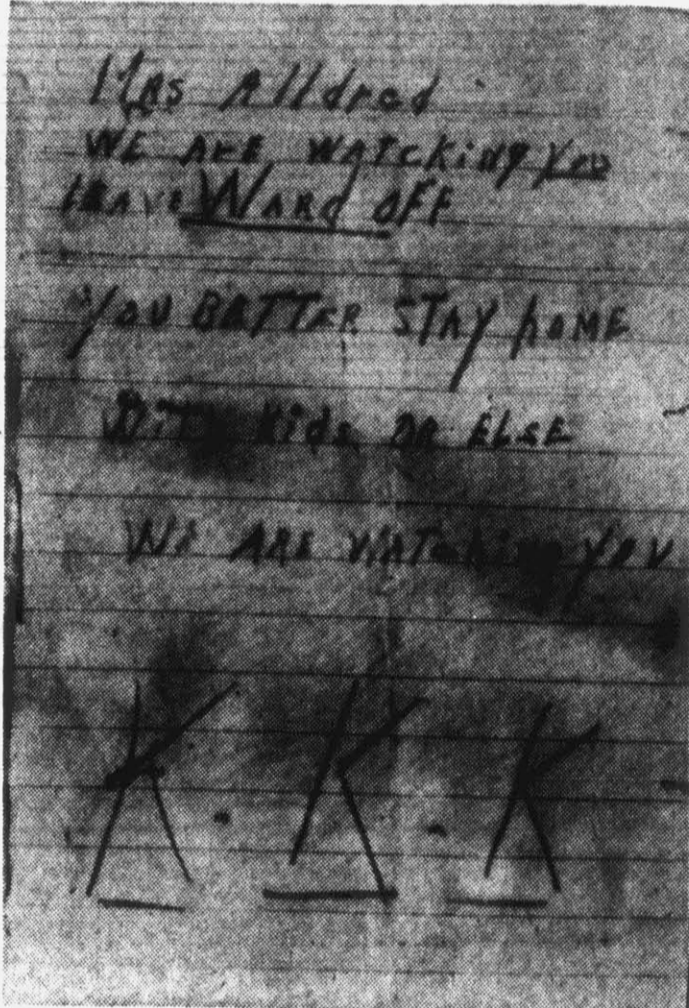 Mrs Alldred
WE ARE WATCKiNg You
LEAVE WARd OFF
YOU BETTER STAY hOME
WiTh Kids OR ELSE
WE ARE WATCHiNg YOU
K. K. K